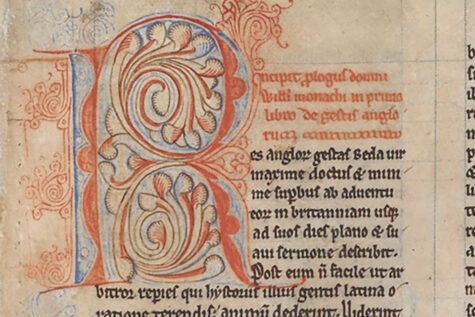 Incipit plogus domni
Willi monachi in primo
libro de gestis anglo
rum
Res anglor gestas Beda uir
maxime doctus & mini
me supbus ab aduentu
eor in britanniam usq
ad suos dies plano & su
aui sermone describit.
Post eum n̄ facile ut ar
bitror repies qui hystoriis illius gentis latina o
ratione texendis animū dederint. Viderint